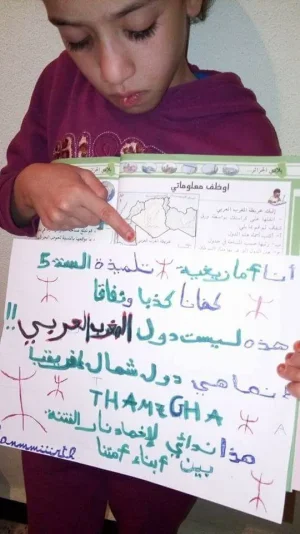 بلادي الجزائر
بلادي الجزائر
أوظف معلوماتي
أنا أمازيغية تلميذة السنة 5
كفانا كذبا ونفاقا
هذه ليست دول المغرب العربي !!
إنما هي دول شمال إفريقيا
THAMZGHA
هذا ندائي لإخماد نار الفتنة
بين أبناء أمتنا